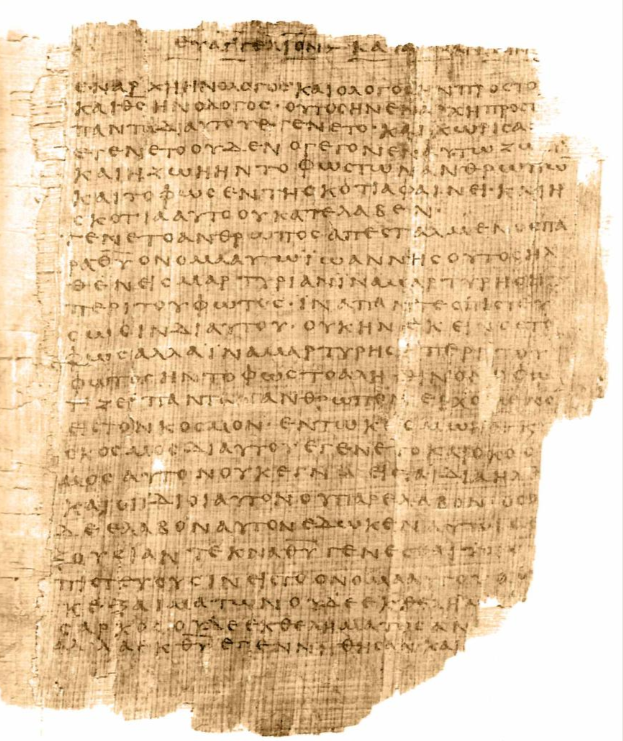 ΕΥΑΓΓΕΛΙΟΝ ΚΑ
ΕΝΑΡΧΗΗΝΟΛΟΓΟϹΚΑΙΟΛΟΓΟϹΗΝΠΡΟϹΤΟ
ΚΑΙΘϹΗΝΟΛΟΓΟϹ·ΟΥΤΟϹΗΝΕΝΑΡΧΗΠΡΟϹΤ
ΠΑΝΤΑΔΙΑΥΤΟΥΕΓΕΝΕΤΟ·ΚΑΙΧΩΡΙϹΑ
ΕΓΕΝΕΤΟΟΥΔΕΝΟΓΕΓΟΝΕΝΕΝΑΥΤΩΖΩ
ΚΑΙΗΖΩΗΗΝΤΟΦΩϹΤΩΝΑΝΘΡΩΠΩ
ΚΑΙΤΟΦΩϹΕΝΤΗϹΚΟΤΙΑΦΑΙΝΕΙ·ΚΑΙΗ
ϹΚΟΤΙΑΑΥΤΟΟΥΚΑΤΕΛΑΒΕΝ·
ΓΕΝΕΤΟΑΝΘΡΩΠΟϹΑΠΕϹΤΑΛΜΕΝΟϹΠΑ
ΡΑΘΥΟΝΟΜΑΑΥΤΩΙΩΑΝΝΗϹΟΥΤΟϹΗΛ
ΘΕΝΕΙϹΜΑΡΤΥΡΙΑΝΙΝΑΜΑΡΤΥΡΗϹΗ
ΠΕΡΙΤΟΥΦΩΤΟϹ·ΙΝΑΠΑΝΤΕϹΠΙϹΤΕΥ
ϹΩϹΙΝΔΙΑΥΤΟΥ·ΟΥΚΗΝΕΚΕΙΝΟϹΤΟ
ΦΩϹΑΛΛΑΙΝΑΜΑΡΤΥΡΗϹΗΠΕΡΙΤΟΥ
ΦΩΤΟϹΗΝΤΟΦΩϹΤΟΑΛΗΘΙΝΟΝΟΦΩ
ΤΙΖΕΙΠΑΝΤΑΑΝΘΡΩΠΟΝΕΡΧΟΜΕΝΟΝ
ΕΙϹΤΟΝΚΟϹΜΟΝ·ΕΝΤΩΚΟϹΜΩΗΝΚ
ΚΟϹΜΟϹΔΙΑΥΤΟΥΕΓΕΝΕΤΟΚΑΙΟΚΟϹ
ΜΟϹΑΥΤΟΝΟΥΚΕΓΝΩΕΙϹΤΑΙΔΙΑΗΛΘ
ΚΑΙΟΙΙΔΙΟΙΑΥΤΟΝΟΥΠΑΡΕΛΑΒΟΝ·ΟϹΟ
ΔΕΕΛΑΒΟΝΑΥΤΟΝΕΔΩΚΕΝΑΥΤΟΙϹΕ
ΞΟΥϹΙΑΝΤΕΚΝΑΘΥΓΕΝΕϹΘΑΙΤΟΙϹ
ΠΙϹΤΕΥΟΥϹΙΝΕΙϹΤΟΟΝΟΜΑΑΥΤΟΥ·Ο
ΚΕΞΑΙΜΑΤΩΝΟΥΔΕΕΚΘΕΛΗΜΑ
ϹΑΡΚΟϹΟΥΔΕΕΚΘΕΛΗΜΑΤΟϹΑΝ
ΑΛΛΑΕΚΘΥΕΓΕΝΝΗΘΗϹΑΝΚΑΙ